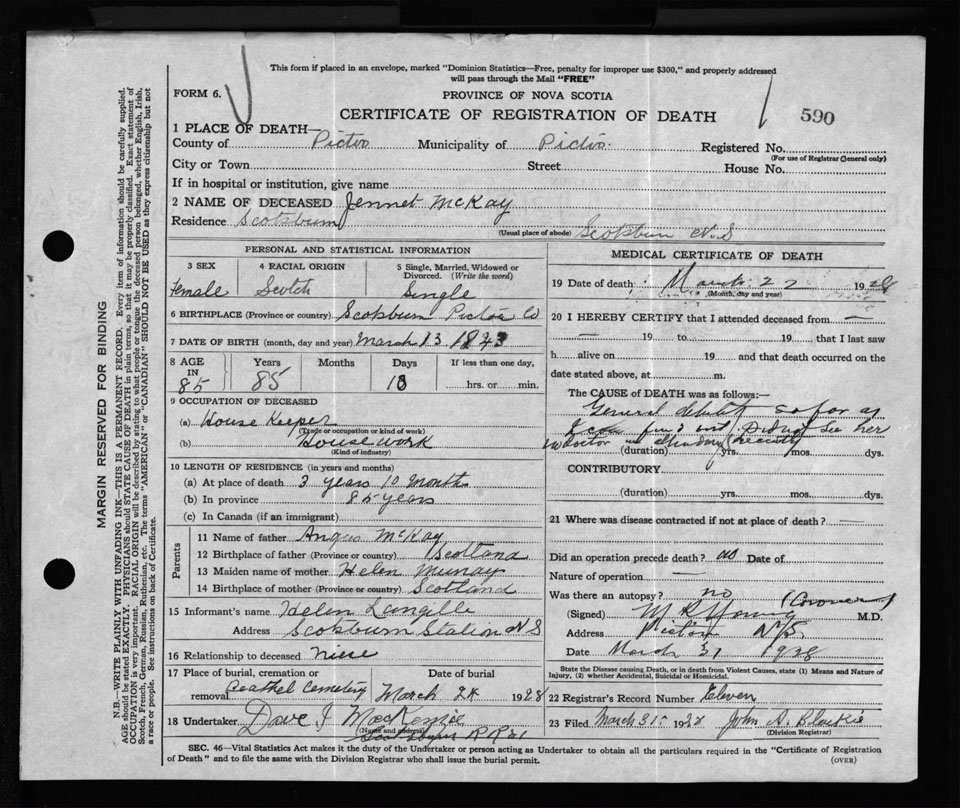 This form if placed in an envelope, marked "Dominion Statistics—Free, penalty for improper use $300," and properly addressed
will pass through the Mail "FREE"
FORM 6.
PROVINCE OF NOVA SCOTIA
CERTIFICATE OF REGISTRATION OF DEATH
590
1 PLACE OF DEATH—
County of Pictou Municipality of Pictou Registered No.
(For use of Registrar General only)
City or Town Street House No.
If in hospital or institution, give name
2 NAME OF DECEASED Jennet McKay
Residence Scotsburn
(Usual place of abode) Scotsburn N.S
PERSONAL AND STATISTICAL INFORMATION
3 SEX 4 RACIAL ORIGIN 5 Single, Married, Widowed or Divorced. (Write the word)
Female Scotch Single
6 BIRTHPLACE (Province or country) Scotsburn Pictou Co
7 DATE OF BIRTH (month, day and year) March 13 1843
8 AGE IN Years Months Days If less than one day,
85 85 10 hrs. or min.
9 OCCUPATION OF DECEASED
(a) House Keeper
(Trade or occupation or kind of work)
(b) House work
(Kind of industry)
10 LENGTH OF RESIDENCE (in years and months)
(a) At place of death 3 years 10 months
(b) In province 85 years
(c) In Canada (if an immigrant)
Parents
11 Name of father Angus McKay
12 Birthplace of father (Province or country) Scotland
13 Maiden name of mother Helen Munay
14 Birthplace of mother (Province or country) Scotland
15 Informant's name Helen Langille
Address Scotsburn Station N S
16 Relationship to deceased niese
17 Place of burial, cremation or removal Date of burial
Cemetery March 24 1928
18 Undertaker Dave J MacKenzie
(Name and address)
Scotsburn R R #1
MEDICAL CERTIFICATE OF DEATH
19 Date of death: March 22 1928
(Month, day and year)
20 I HEREBY CERTIFY that I attended deceased from —
— 19 to 19 that I last saw
h alive on 19 and that death occurred on
date stated above, at m.
The CAUSE OF DEATH was as follows:—
General debility so far as
I can find out. Did not see her
no doctor was attending recently
(duration) yrs. mos. dys.
CONTRIBUTORY
(duration) yrs. mos. dys.
21 Where was disease contracted if not at place of death? —
Did an operation precede death? no Date of
Nature of operation —
Was there an autopsy? no (Coroner)
(Signed) M R Young M.D.
Address Pictou N/S
Date March 31 1928
State the Disease causing Death, or in death from Violent Causes, state (1) Means and Nature of Injury, (2) whether Accidental, Suicidal or Homicidal.
22 Registrar's Record Number Eleven
23 Filed March 31st 1928 John A. Blaikie
(Division Registrar)
SEC. 46—Vital Statistics Act makes it the duty of the Undertaker or person acting as Undertaker to obtain all the particulars required in the "Certificate of Registration
of Death" and to file the same with the Division Registrar who shall issue the burial permit.
(OVER)
MARGIN RESERVED FOR BINDING
N.B.—WRITE PLAINLY WITH UNFADING INK—THIS IS A PERMANENT RECORD. Every item of information should be carefully supplied.
AGE should be stated EXACTLY. PHYSICIANS should STATE CAUSE OF DEATH in plain terms, so that it may be properly classified. Exact statement of
OCCUPATION is very important. RACIAL ORIGIN will be described by stating to what people or tongue the deceased person belonged, whether English, Irish,
Scotch, French, German, Russian, Ruthenian, etc. The terms "AMERICAN" or "CANADIAN" SHOULD NOT BE USED as they express citizenship but not
a race or people. See instructions on back of Certificate.